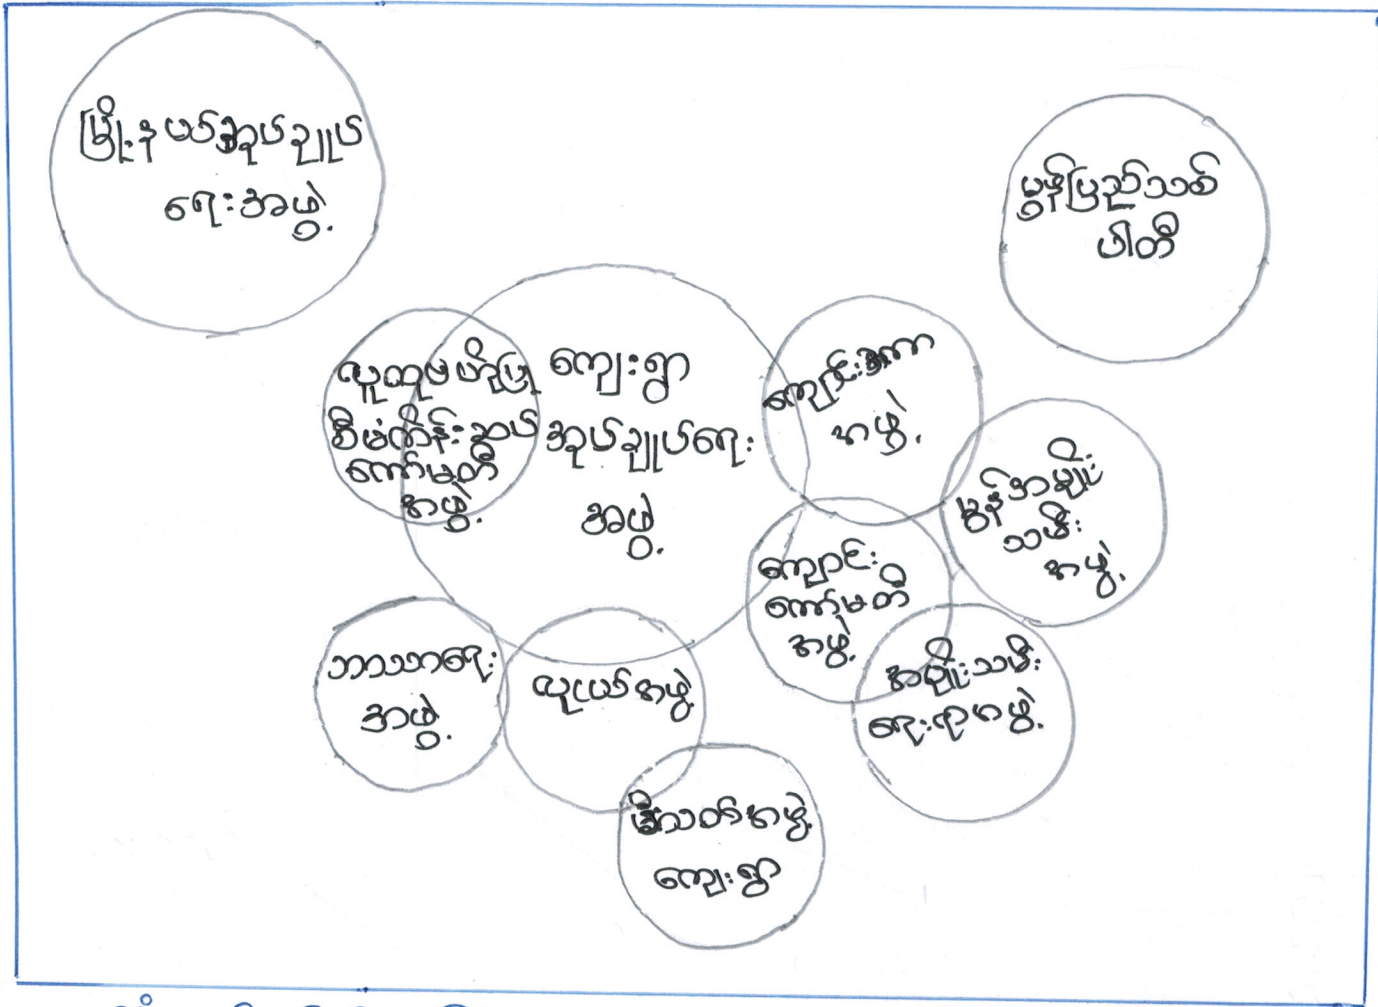 မြို့နယ်အုပ်ချုပ်
ရေးအဖွဲ့
မွန်ပြည်သစ်
ပါတီ
လူထုဗဟိုပြု
စီမံကိန်းဆပ်
ကော်မတီ
အဖွဲ့
ကျေးရွာ
အုပ်ချုပ်ရေး
အဖွဲ့
ကျောင်းအကာ
အဖွဲ့
မွန်အမျိုး
သမီး
အဖွဲ့
ကျောင်း
ကော်မတီ
အဖွဲ့
အမျိုးသမီး
ရေးရာအဖွဲ့
ဘာသာရေး
အဖွဲ့
လူငယ်အဖွဲ့
မီးသတ်အဖွဲ့
ကျေးရွာ